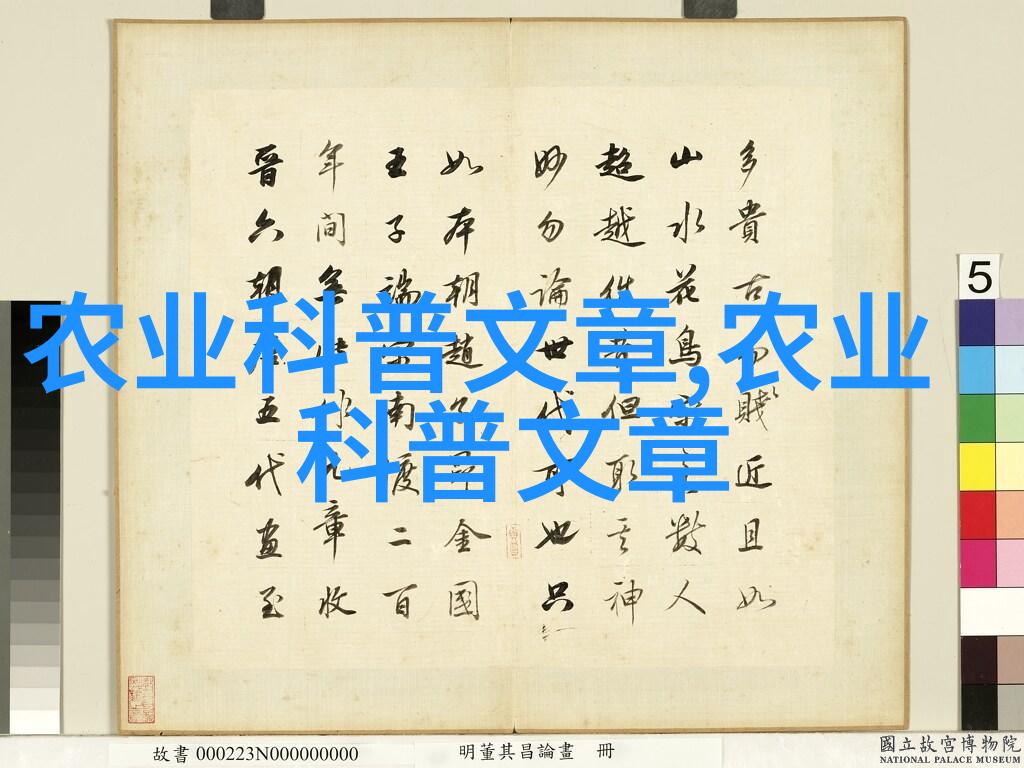 农业科普文章,农业
科普文章
多貴古賤近且如
山水花鳥數人
超越但取其神
妙勿論世代可也只
如本朝趙金國
王子端宋南渡二百
年間無章收
晉六朝五代畫至
5
故書 000223N000000000
明董其昌論畫 冊
國立故宮博物院
NATIONAL PALACE MUSEUM